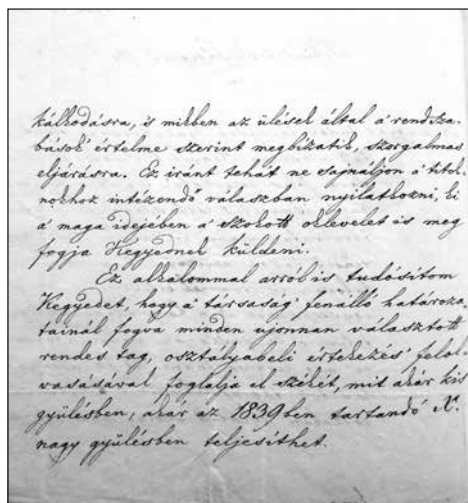 kálkodásra, is mikben az ülések által a' rendsza-
bások' értelme szerint megbizatik, szorgalmas
eljárásra. Ez iránt tehát ne sajnáljon a' titok-
nokhoz intézendő válaszban nyilatkozni, ki
a' maga idejében a' szokott oklevelet is meg
fogja Kegyednek küldeni.
Ez alkalommal arról is tudósítom
Kegyedet, hogy a' társaság' fenálló határoza-
tainál fogva minden ujonnan választott
rendes tag, osztályabeli értekezés' felol-
vasásával foglalja el székét, mit akár kis
gyülésben, akár az 1839ben tartandó X.
nagy gyülésben teljesíthet.